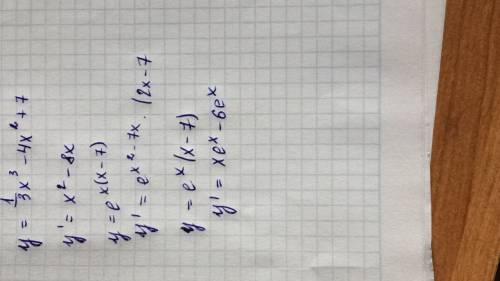 y = 1/3 x³ - 4x² + 7
y' = x² - 8x
y = e^x(x-7)
y' = e^x²-7x · (2x-7
y = e^x (x-7)
y' = xe^x - 6e^x